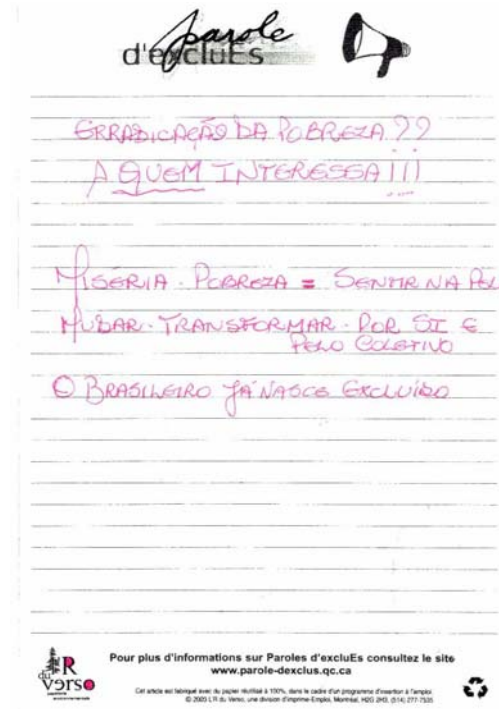 parole
d'excluEs
ERRADICAÇÃO DA POBREZA ??
A QUEM INTERESSA !!!
MISERIA - POBREZA = SENTIR NA PEL
MUDAR - TRANSFORMAR - POR SI E
PELO COLETIVO
O BRASILEIRO JÁ NASCE EXCLUÍDO
L'R
du
verso
Pour plus d'informations sur Paroles d'excluEs consultez le site
www.parole-dexclus.qc.ca
Cet article est fabriqué avec du papier réutilisé à 100%, dans le cadre d'un programme d'insertion à l'emploi
© 2003 L'R du Verso, une division d'Imprime-Emploi, Montréal, H2G 2H3, (514) 277-7535